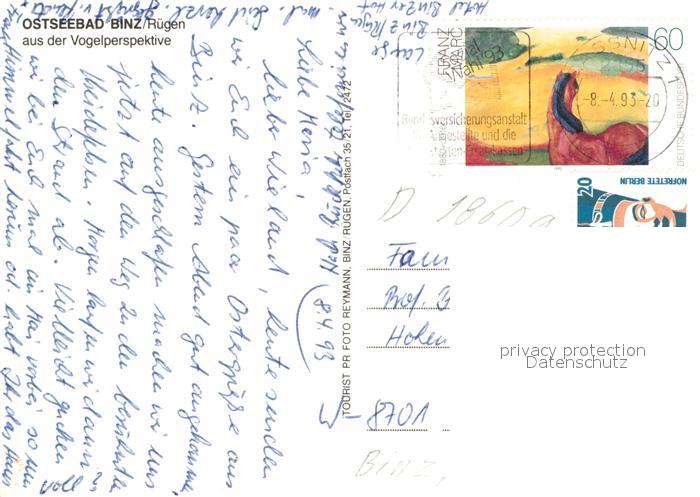 OSTSEEBAD BINZ/Rügen
aus der Vogelperspektive
8.4.93
Liebe Maria,
lieber Wieland, heute senden
wir Euch ein paar Ostergrüße aus
Binz. Gestern Abend gut angekommen,
heute ausgeschlafen machen wir uns
jetzt auf den Weg zu den
Morgen laufen wir dann
den Strand ab. Vielleicht gucken
wir bei Euch mal im Mai vorbei so um
Himmelfahrt herum od. habt Ihr das Haus
voll?
TOURIST PR FOTO REYMANN, BINZ/RÜGEN, Postfach 35/21, Tel. 2472
Hotel Binzer Hof
Binz/Rügen
FRANZ
MARC
1880-1916
Sozial
Wahl 93
Bundesversicherungsanstalt
für Angestellte und die
Angestellten-Ersatzkassen
SASSNITZ 1
-8.-4.93-20
60
DEUTSCHE BUNDESPOST
20
NOFRETETE BERLIN
D 1860a
Fam
Prof. B
Hohen
W-8701
Binz,
privacy protection
Datenschutz